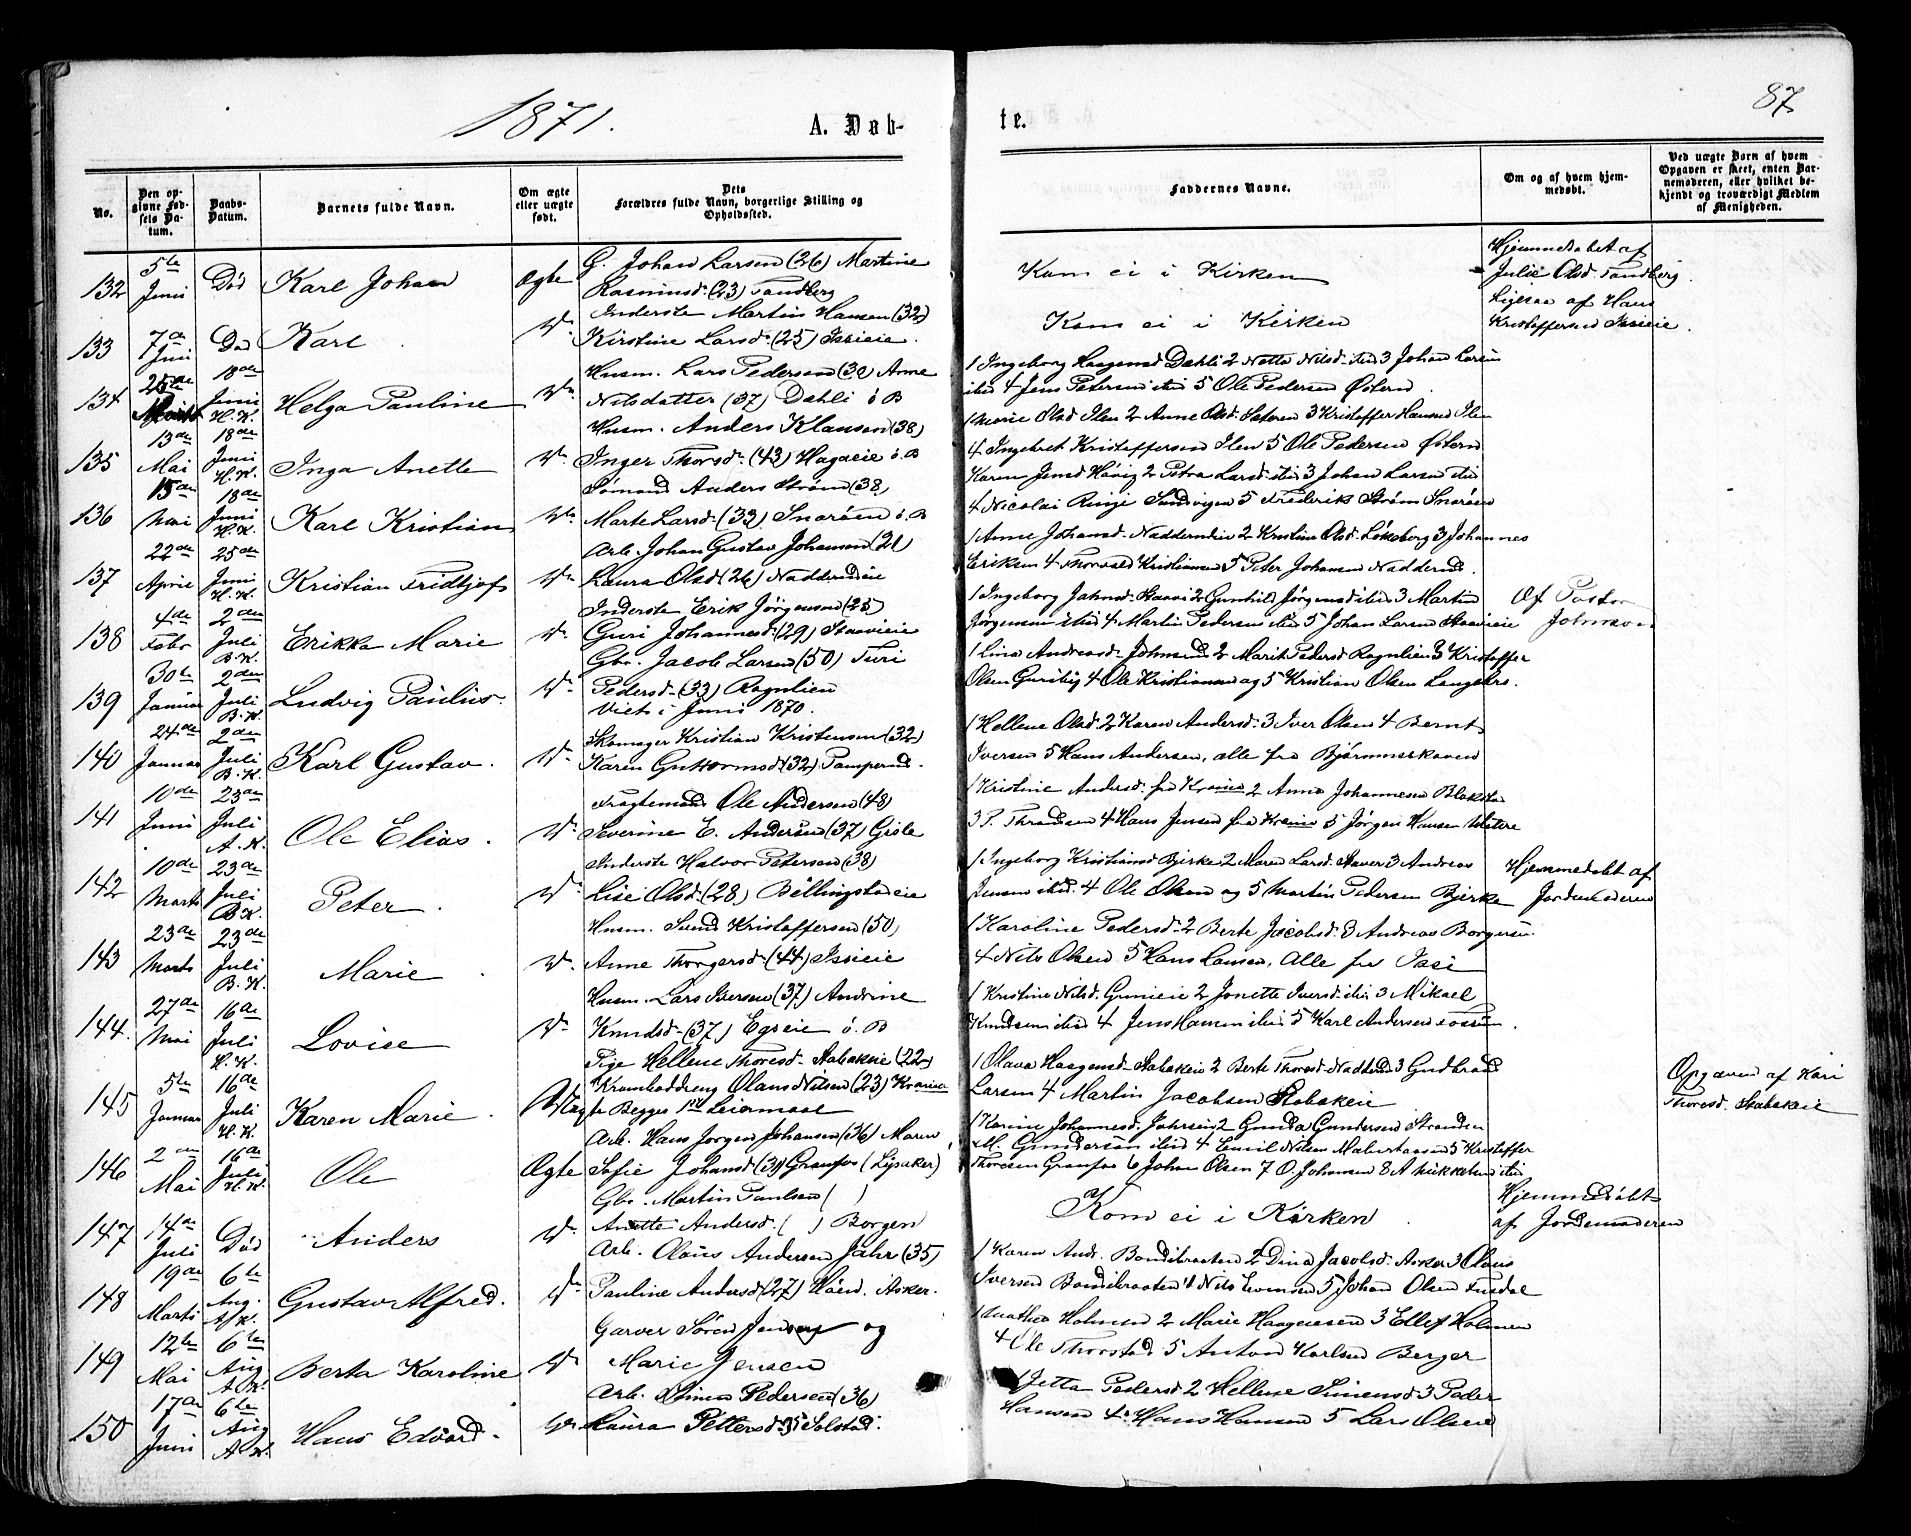 1871.
A. Døb-
te.
87
No.
Den opgivne Fødsels Datum.
Daabs-Datum.
Barnets fulde Navn.
Om ægte eller uægte født.
Dets Forældres fulde Navn, borgerlige Stilling og Opholdssted.
Faddernes Navne.
Om og af hvem hjemmedøbt.
Ved uægte Børn af hvem Opgaven er skeet, enten Barnemoderen, eller hvilket bekjendt og troværdigt Medlem af Menigheden.
132 5te Juni Død Karl Johan Ægte G. Johan Larsen (26) Martine
Rasmusd. (23) Tandberg
Kom ei i Kirken
Hjemmedøbt af
Julie Olsd. Tandberg
133 7de Juni Død Karl Do. Inderste Martin Hansen (32)
Kirstine Larsd. (25) Issieie.
Kom ei i Kirken
Ligesaa af Hans
Kristoffersen Issieie.
134 25de Marts 18de Juni H.K. Helga Pauline Do. Husm. Lars Pedersen (30) Anne
Nilsdatter (37) Dahli ö. B
1 Ingeborg Haagensd Dahli 2 Netta Nilsd. ibid 3 Johan Larsen
ibid 4 Jens Petersen ibid 5 Ole Pedersen Østern.
135 13de Mai 18de Juni H.K. Inga Anette Do. Husm. Anders Klausen (38)
Inger Thorsd. (43) Hagaeie ö. B
1 Marie Olsd Ilen 2 Anne Olsd. Sæteren 3 Kristoffer Hansen Ilen
4 Ingebret Kristoffersen Ilen 5 Ole Pedersen Østern
136 15de Mai 18de Juni H.K. Karl Kristian Do. Sømand Anders Strøm (38)
Marte Larsd. (33) Snarøen ö. B
Karen Jensd Høvig 2 Petra Larsd. ibid 3 Johan Larsen ibid
4 Nicolai Ringi Sundvigen 5 Frederik Strøm Snarøen
137 22de April 25de Juni H.K. Kristian Fridtjof Do. Arb. Johan Gustav Johansen (21)
Laura Olsd (26) Nadderudeie
1 Anne Johansd. Nadderudeie 2 Kristine Olsd. Løkeberg 3 Johannes
Eriksen 4 Thorvald Kristiansen 5 Peter Johansen Nadderud.
138 4de Febr 2den Juli B.K. Erikka Marie Do. Inderste Erik Jørgensen (25)
Guri Johannesd. (29) Staavieie
1 Ingeborg Jahnsd. Staavi 2 Gunhild Jørgensd ibid 3 Martin
Jørgensen ibid 4 Martin Pedersen ibid 5 Johan Larsen Staavieie
Af Pastor
Johnson
139 30te Januar 2den Juli B.K. Ludvig Paulus. Do. Gbr. Jacob Larsen (50) Turi
Pedersd. (33) Rognlien
Viet i Juni 1870.
1 Lina Andreasd. Johnsrud 2 Marit Pedersd Rognlien 3 Kristoffer
Olsen Guriby 4 Ole Kristiansen og 5 Kristian Olsen Langaars.
140 24de Januar 2den Juli B.K. Karl Gustav. Do. Skomager Kristian Kristensen (32)
Karen Guttormsd. (32) Tamperud.
1 Hellene Olsd. 2 Karen Andersd. 3 Iver Olsen 4 Bernt
Iversen 5 Hans Andersen, alle fra Bjørnneskaven
141 10de Juni 23de Juli A.K. Ole Elias. Do. Fragtemand Ole Andersen (48)
Severine E. Andersen (37) Gisle
1 Kristine Andersd. fra Krania 2 Anna Johannesen Blakstad
3 P. Thrandsen 4 Hans Jensen fra Krania 5 Jørgen Hansen
142 10de Marts 23de Juli B.K. Peter. Do. Inderste Halvor Petersen (38)
Lise Olsd. (28) Billingstadeie
1 Ingeborg Kristiansd Bjerke 2 Maren Larsd. Staver 3 Andreas
Jensen ibid. 4 Ole Olsen og 5 Martin Pedersen Bjerke
Hjemmedøbt af
Jordemoderen
143 23de Marts 23de Juli B.K. Marie. Do. Husm. Svend Kristoffersen (50)
Anne Thorgersd. (44) Issieie
1 Karoline Pedersd. 2 Berte Jacobsd. 3 Andreas Borgersen.
4 Nils Olsen 5 Hans Larsen, Alle fra Issi
144. 27de Mai 16de Juli H.K. Lovise Do. Husm. Lars Iversen (37) Andrine
Knudsd. (37) Egseie ö. B
1 Kristine Nilsd. Grinieie 2 Jonette Iversd. ibid 3 Mikael
Knudsen ibid 4 Jens Hansen ibid 5 Karl Andersen Fossum.
145 5te Januar 16de Juli H.K. Karen Marie. Uægte Pige Hellene Thoresd. Stabækeie (22)
Kramboddreng Olaus Nilsen (23) Krania
Begges 1ste Leiermaal
1 Olava Haagensd. Stabækeie 2 Berte Thoresd. Nadderud 3 Gudbrand
Larsen 4 Martin Jacobsen Stabækeie
Opgaven af Kari
Thoresd. Stabækeie
146 2den Mai 16de Juli H.K. Ole Ægte Arb. Hans Jørgen Johansen (36) Maren
Sofie Johansd (31) Granfos (Lysaker)
1 Karine Johannesd. Jahreie 2 Gunda Gundersen Stranden
M. Gundersen ibid 4 Emil Nilsen 5 Kristoffer
Thoresen Granfos 6 Johan Olsen 7 O. Johnsen 8 A Mikkelsen ibid
147 14de Juli Død Anders Do. Gbr. Martin Paulsen ( )
Anette Andersd. ( ) Borgen
Kom ei i Kirken.
Hjemmedøbt
af Jordemoderen
148 19de Marts 6te Aug. A.K. Gustav Alfred. Do. Arb. Olaus Andersen Jahr (35)
Pauline Andersd (27) Høen. Asker.
1 Karen Andr. Bondibraaten 2 Dina Jacobsd. Asker 3 Olaus
Iversen Bondibraaten 4 Nils Evensen 5 Johan Olsen Fusdal
149 12te Mai 6te Aug A.K. Berta Karoline Do Garver Søren Jensen og
Marie Jensen
1 Mathea Holmen 2 Marie Haagensen 3 Ellef Holmen
4 Ole Thorstad 5 Anton Karlsen Berger
150 17de Juni 6te Aug A.K. Hans Edvard. Do Arb. Simen Pedersen (36)
Laura Pettersd. 35 Solstad.
1 Jetta Pedersd 2 Hellene Simensd 3 Peder
Hansen 4 Hans Hansen 5 Lars Olsen